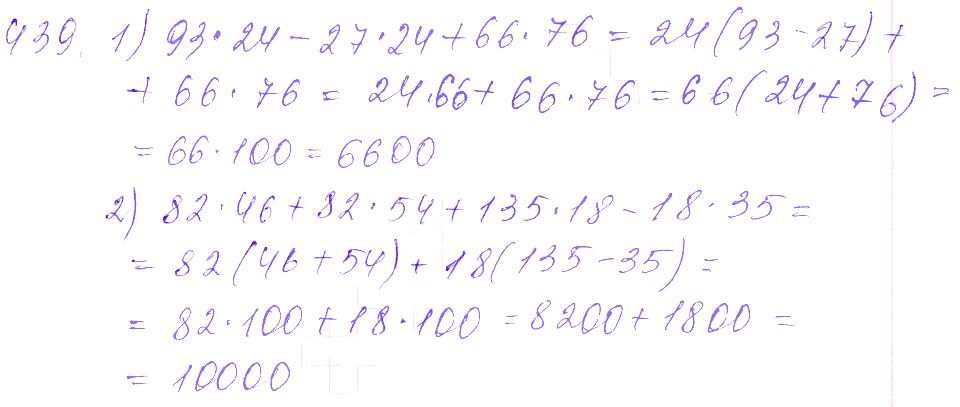 439. 1) 93·24-27·24+66·76 = 24(93-27)+
+ 66·76 = 24·66+66·76=66(24+76)=
= 66·100 = 6600
2) 82·46+82·54+135·18-18·35=
= 82(46+54)+18(135-35)=
= 82·100+18·100 = 8200+1800=
= 10000